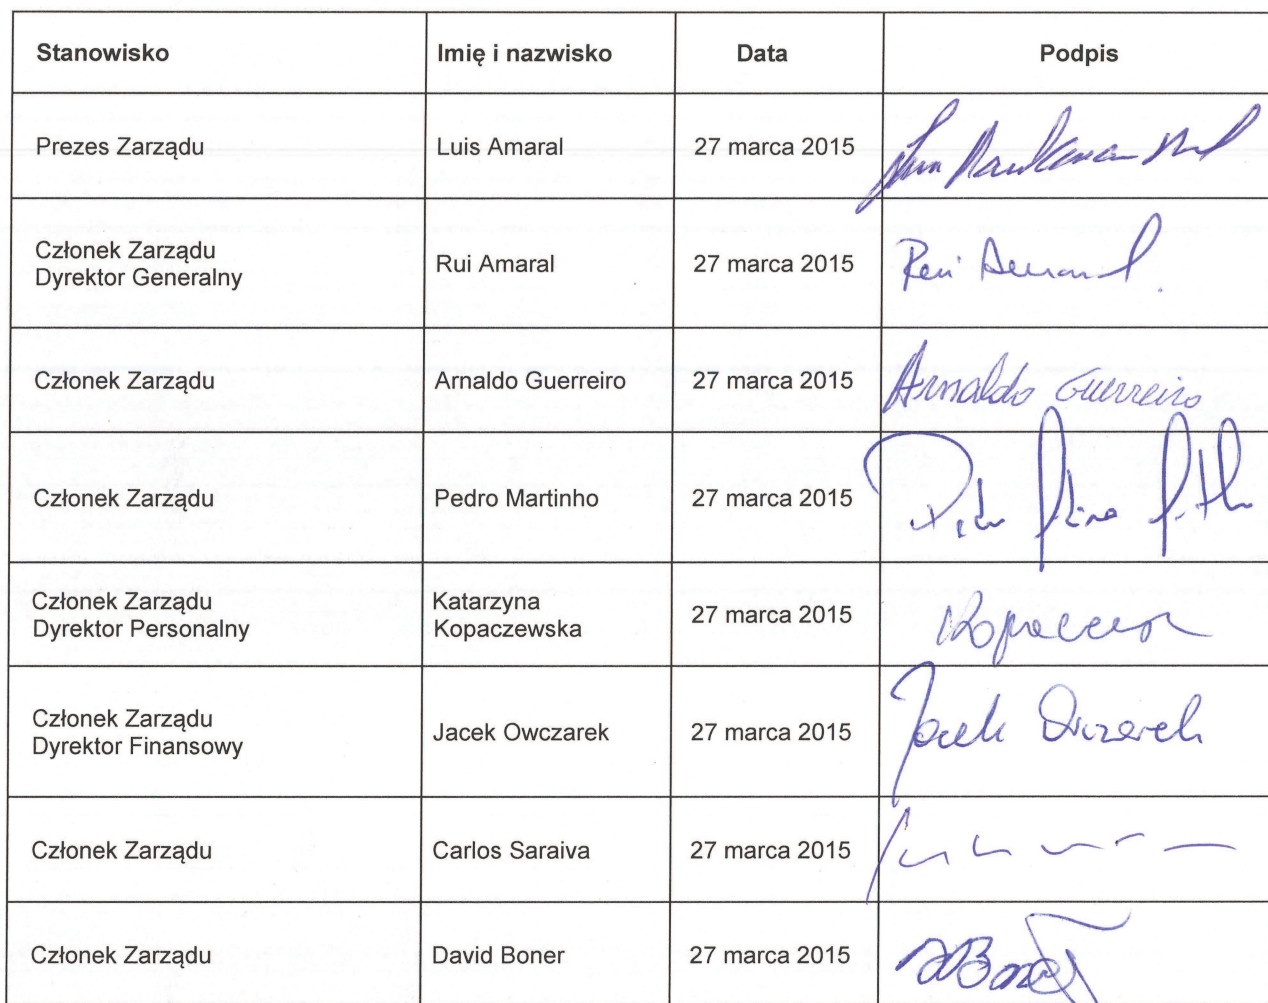 Stanowisko Imię i nazwisko Data Podpis
Prezes Zarządu Luis Amaral 27 marca 2015
Członek Zarządu
Dyrektor Generalny Rui Amaral 27 marca 2015 Rui Amaral
Członek Zarządu Arnaldo Guerreiro 27 marca 2015 Arnaldo Guerreiro
Członek Zarządu Pedro Martinho 27 marca 2015
Członek Zarządu
Dyrektor Personalny
Katarzyna
Kopaczewska
27 marca 2015
Członek Zarządu
Dyrektor Finansowy Jacek Owczarek 27 marca 2015 Jacek Owczarek
Członek Zarządu Carlos Saraiva 27 marca 2015
Członek Zarządu David Boner 27 marca 2015